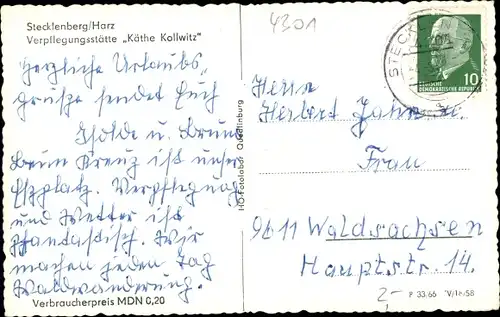 Stecklenberg/Harz
Verpflegungsstätte „Käthe Kollwitz"
4301
Herzliche Urlaubs-
grüße sendet Euch
Isolde u. Bruno
Beim Kreuz ist unser
Eßplatz. Verpflegung
und Wetter ist
phantastisch. Wir
machen jeden Tag
Waldwanderung.
Verbraucherpreis MDN 0,20
HO-Fotolabor Quedlinburg
STECKL
10
DEUTSCHE
DEMOKRATISCHE REPUBLIK
Herrn
Herbert u.
Frau
9611 Waldsachsen
Hauptstr. 14.
2-
P 33/66 IV/14/58